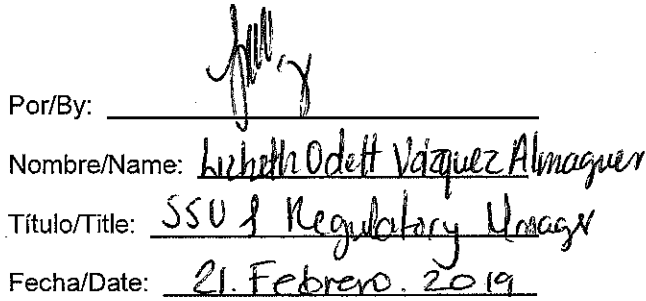 Por/By:
Nombre/Name: Lizbeth Odett Vázquez Almaguer
Título/Title: SSU & Regulatory Manager
Fecha/Date: 21. Febrero. 2019